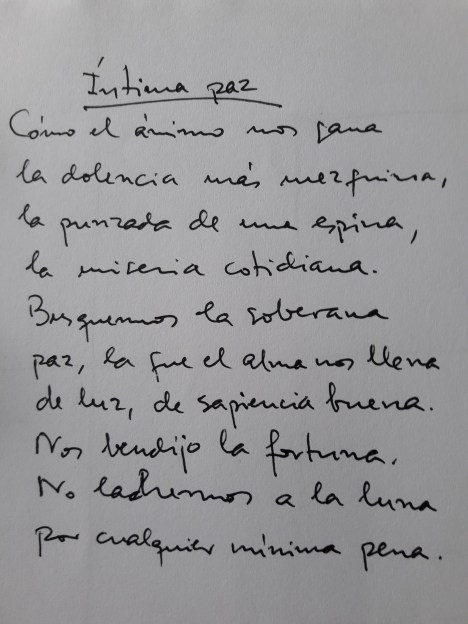 Íntima paz
Cómo el ánimo nos gana
la dolencia más mezquina,
la punzada de una espina,
la miseria cotidiana.
Busquemos la soberana
paz, la que el alma nos llena
de luz, de sapiencia buena.
Nos bendijo la fortuna.
No ladremos a la luna
por cualquier mínima pena.